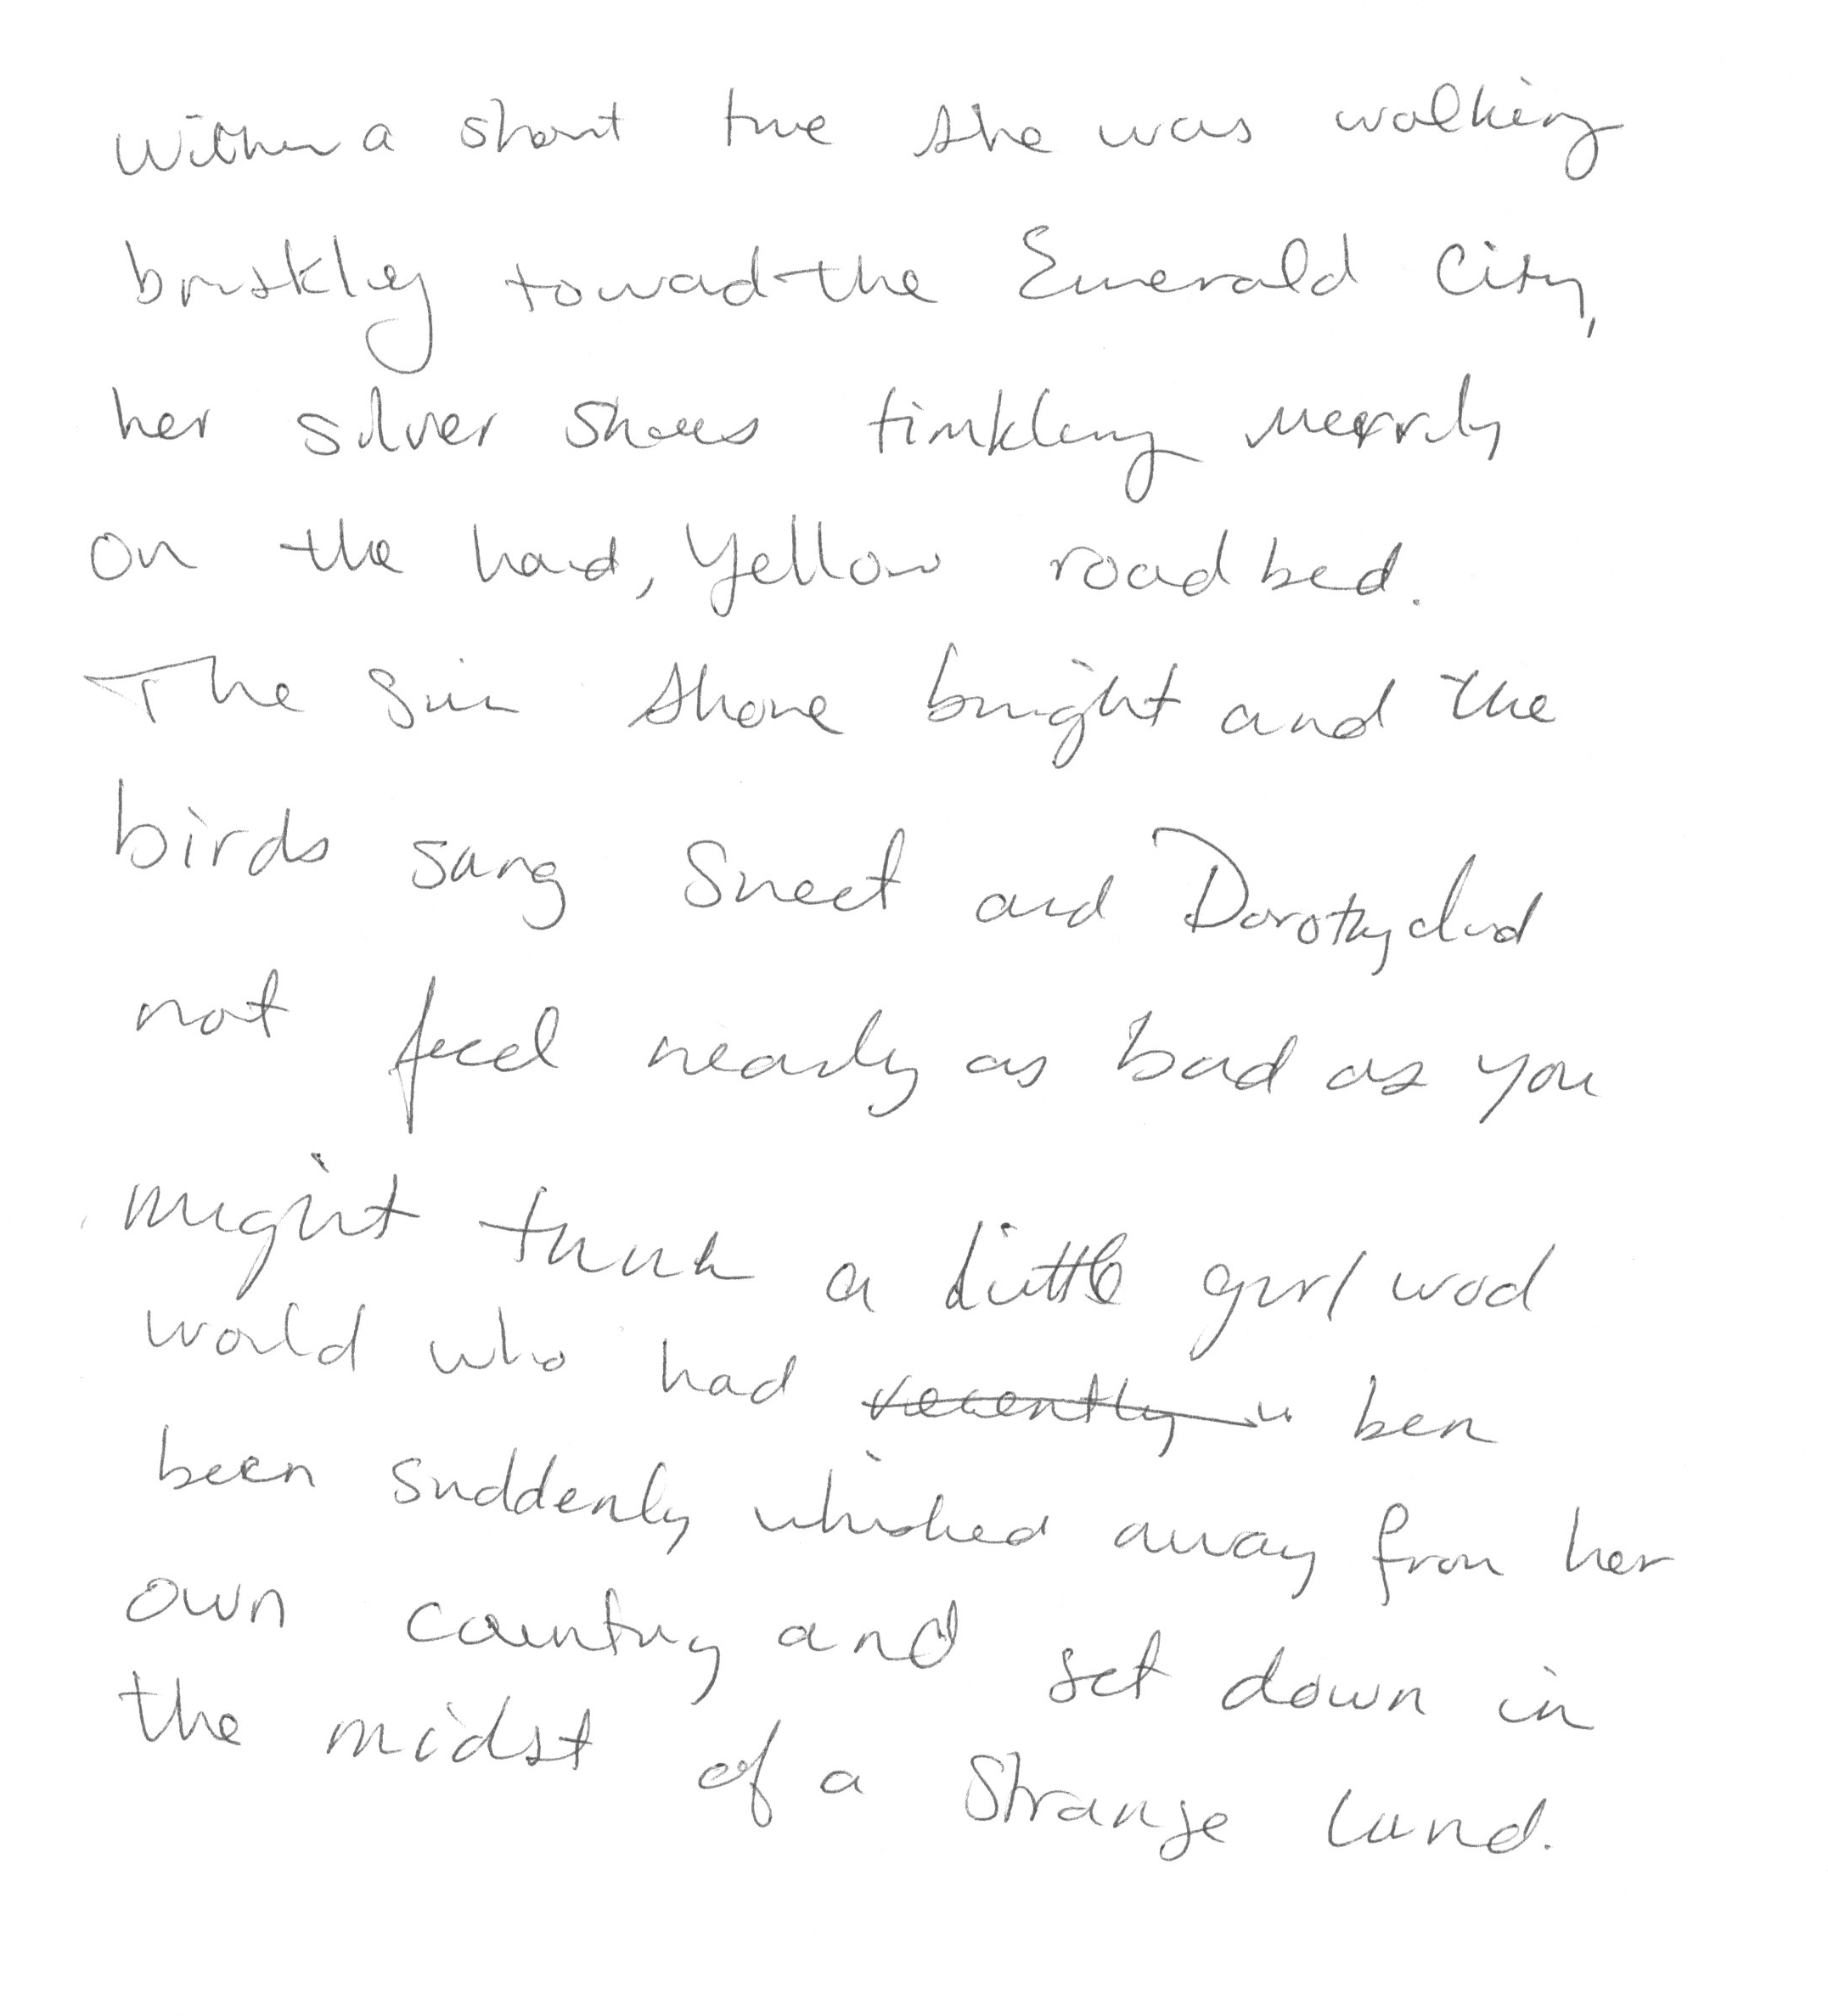 Within a short time she was walking
briskly toward the Emerald City,
her silver shoes tinkling merrily
on the hard, yellow roadbed.
The sun shone bright and the
birds sang sweet and Dorothy did
not feel nearly as bad as you
might think a little girl wod
would who had recently ben
been suddenly whisked away from her
own country and set down in
the midst of a strange land.